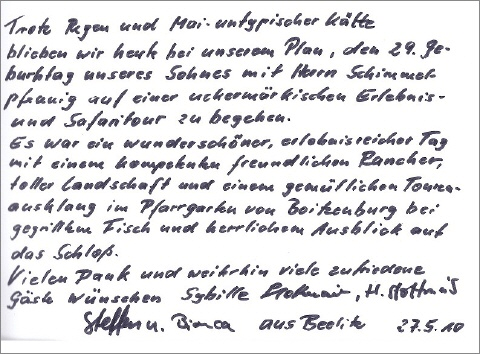 Trotz Regen und Mai-untypischer Kälte
blieben wir heute bei unserem Plan, den 29. Ge-
burtstag unseres Sohnes mit Herrn Schimmel-
pfennig auf einer uckermärkischen Erlebnis-
und Safaritour zu begehen.
Es war ein wunderschöner, erlebnisreicher Tag
mit einem kompetenten freundlichen Rancher,
toller Landschaft und einem gemütlichen Touren-
ausklang im Pfarrgarten von Boitzenburg bei
gegrilltem Fisch und herrlichem Ausblick auf
das Schloß.
Vielen Dank und weiterhin viele zufriedene
Gäste wünschen Sybille , H.
Steffen u. Bianca aus Beelitz 27.5.10